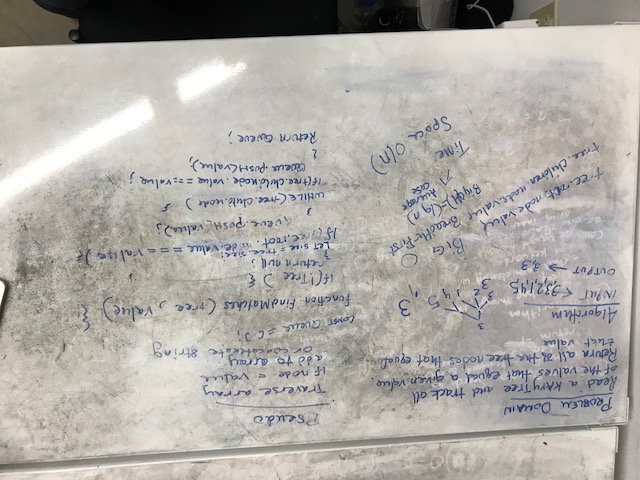 PROBLEM DOMAIN
Read a KAryTree and track all
of the values that equal a given value.
Return all of the tree nodes that equal
that value
Algorithm
INPUT ← 3,3,2,1,4,5
OUTPUT → 3,3
3
3 2 1 4 5 , 3
3
tree.root.node.value
tree.children.node.value
BIG O
Breadth-First
Big(θ)=(lg n)
Average
case
Time
Space O(n)
Pseudo
Traverse array
if node = value
add to array
or concatenate string
const Queue = [ ];
function FindMatches (tree, value) {
if(!Tree ) {
return null;
}
Let size = tree.size;
if (tree.root. node.value === value) {
Queue.push(value);
}
WHILE (tree.child.node) {
if(tree.child.node.value === value;
Queue.push(value);
{
Return Queue;